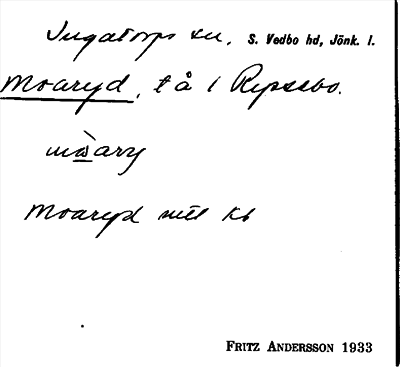 Ingatorps sn, S. Vedbo hd, Jönk. l.
Moaryd, t å 1 Ripsebo.
Moaryd
FRITZ ANDERSSON 1933